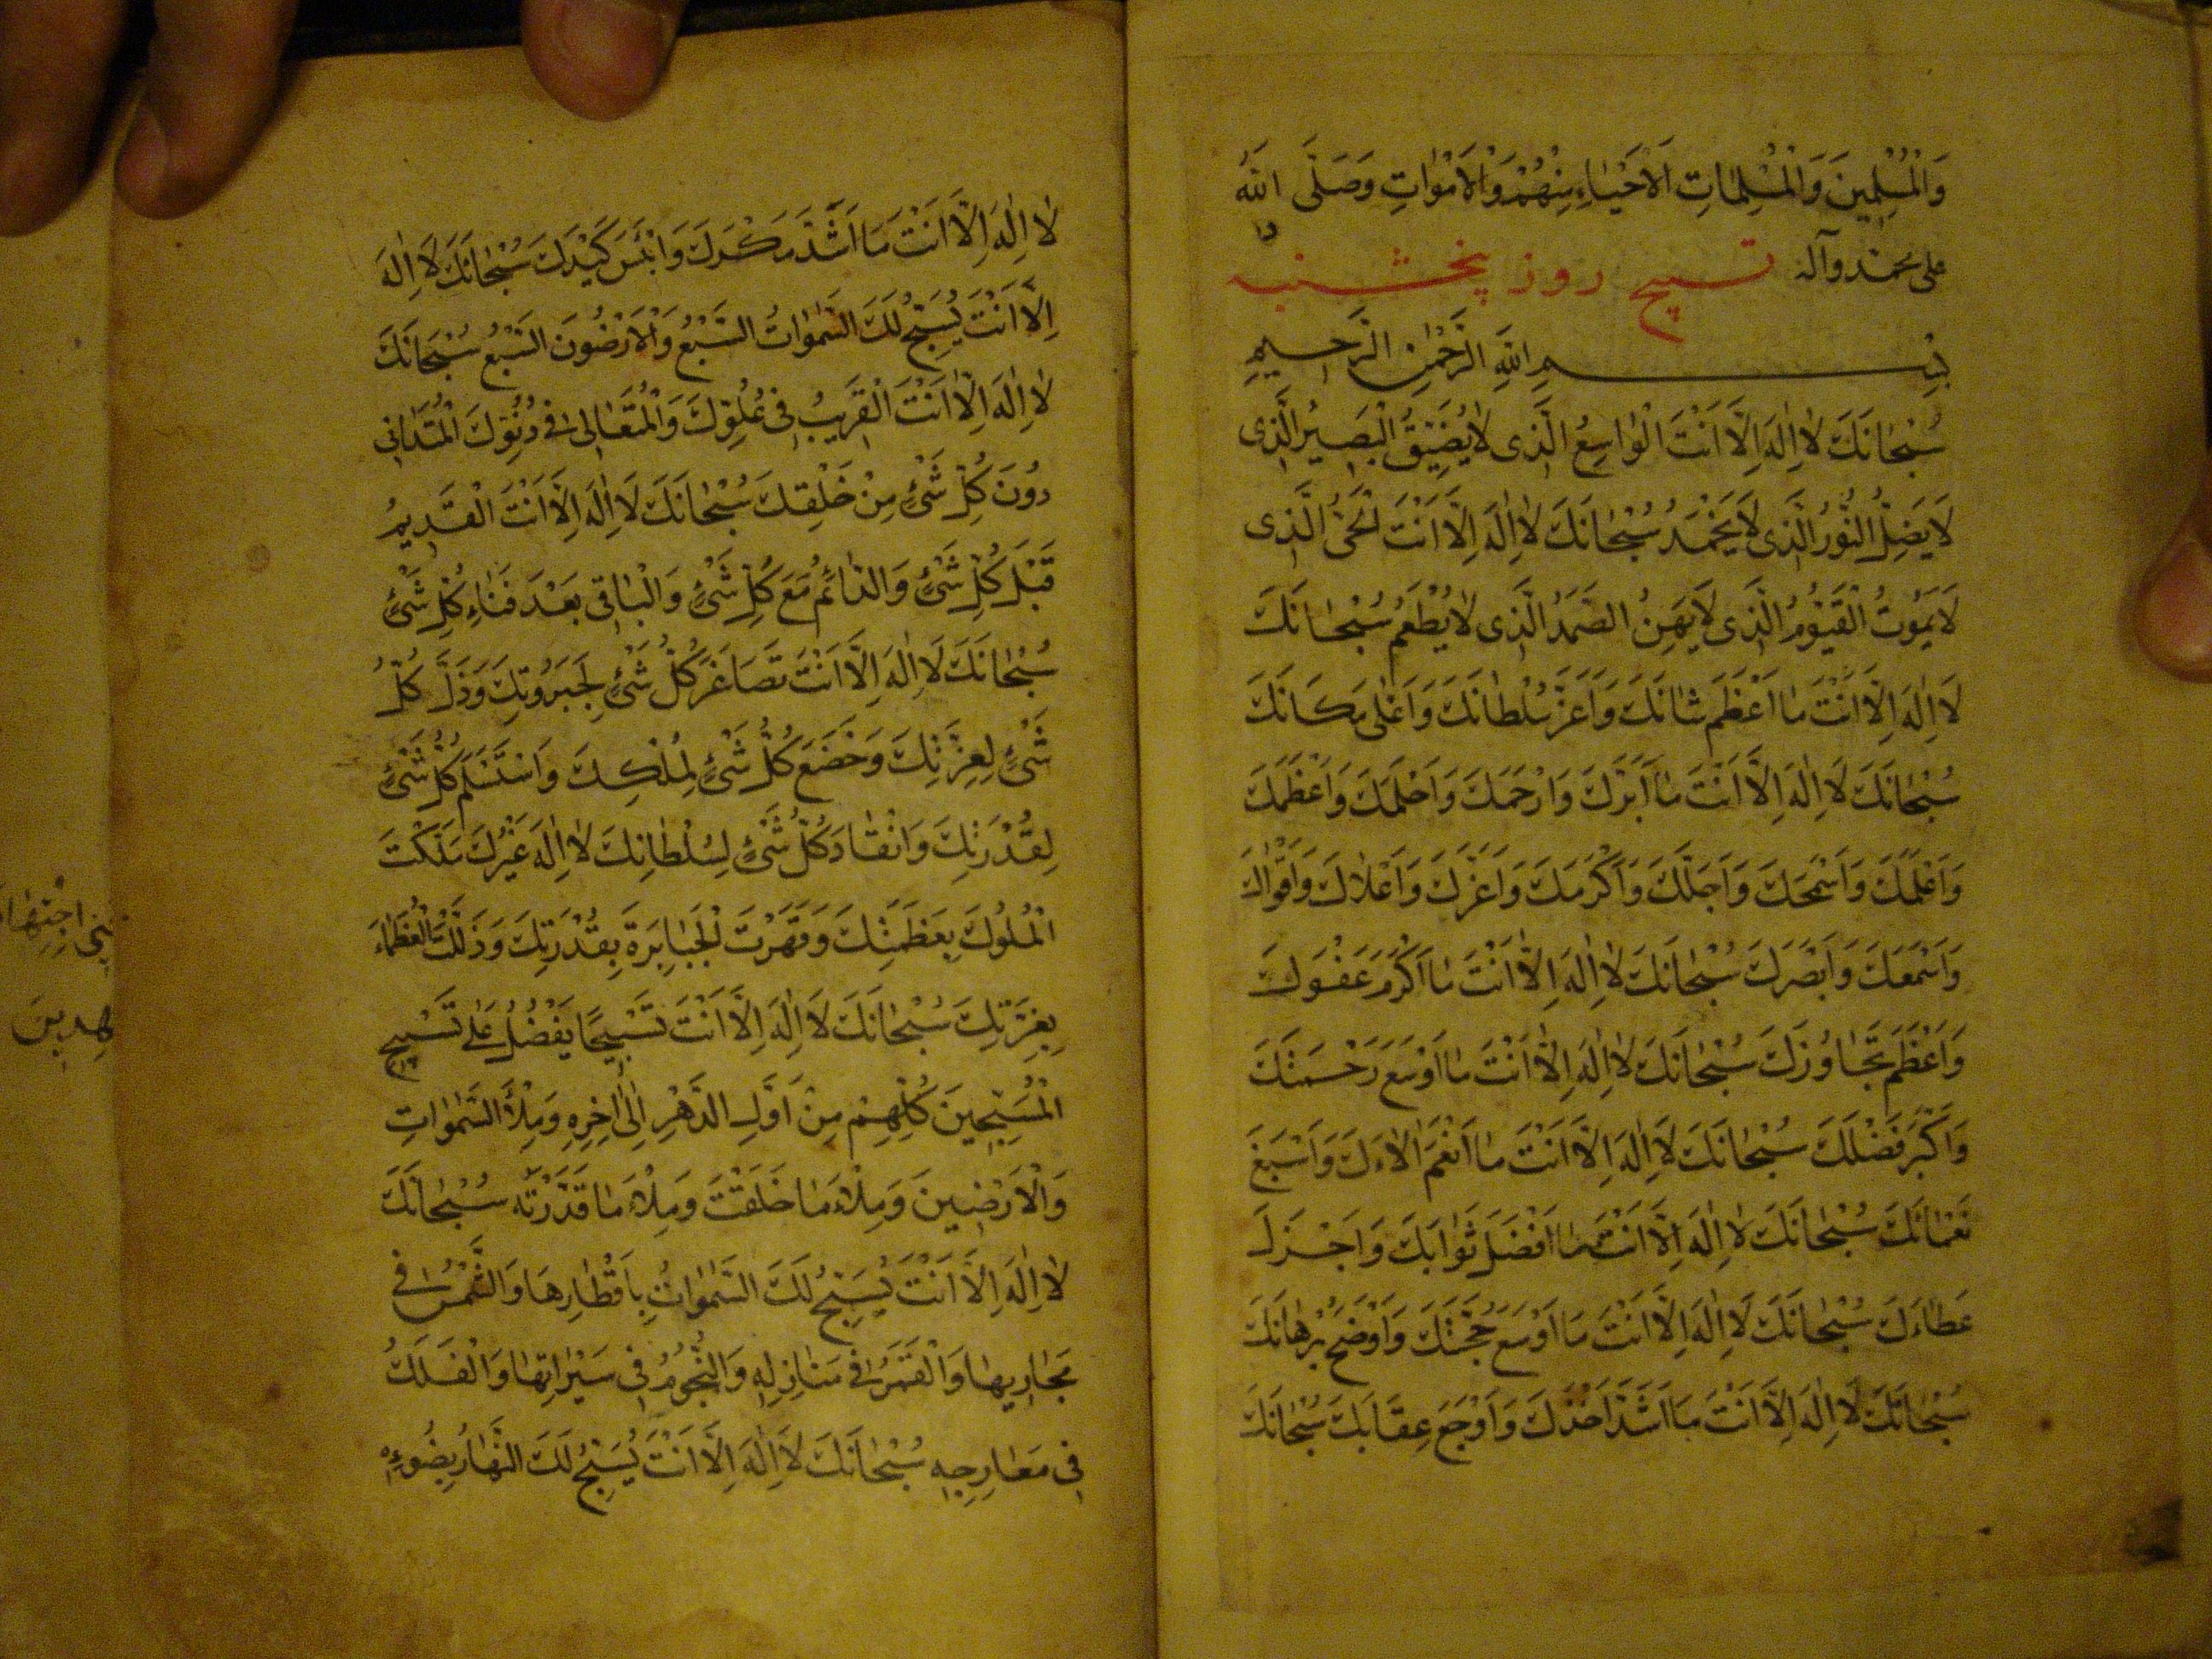 وَالْمُسْلِمِينَ وَالْمُسْلِمَاتِ اَلْاَحْيَاءِ مِنْهُمْ وَالْاَمْوَاتِ وَصَلَّى اللهُ
على محمد وآله تسبيح روز پنجشنبه
بِسْمِ اللهِ الرَّحْمٰنِ الرَّحِيمِ
سُبْحَانَكَ لَا اِلٰهَ اِلَّا اَنْتَ الْوَاسِعُ الَّذِى لَا يُضَيِّقُ الْبَصِيرُ الَّذِى
لَا يَضِلُّ النُّورُ الَّذِى لَا يَخْمَدُ سُبْحَانَكَ لَا اِلٰهَ اِلَّا اَنْتَ الْحَىُّ الَّذِى
لَا يَمُوتُ الْقَيُّومُ الَّذِى لَا يَهِنُ الصَّمَدُ الَّذِى لَا يُطْعَمُ سُبْحَانَكَ
لَا اِلٰهَ اِلَّا اَنْتَ مَا اَعْظَمَ شَانَكَ وَاَعَزَّ سُلْطَانَكَ وَاَعْلٰى مَكَانَكَ
سُبْحَانَكَ لَا اِلٰهَ اِلَّا اَنْتَ مَا اَبَرَّكَ وَاَرْحَمَكَ وَاَحْلَمَكَ وَاَعْظَمَكَ
وَاَعْلَمَكَ وَاَسْمَحَكَ وَاَجَلَّكَ وَاَكْرَمَكَ وَاَعَزَّكَ وَاَعْلَاكَ وَاَقْوَاكَ
وَاَسْمَعَكَ وَاَبْصَرَكَ سُبْحَانَكَ لَا اِلٰهَ اِلَّا اَنْتَ مَا اَكْرَمَ عَفْوَكَ
وَاَعْظَمَ تَجَاوُزَكَ سُبْحَانَكَ لَا اِلٰهَ اِلَّا اَنْتَ مَا اَوْسَعَ رَحْمَتَكَ
وَاَكْبَرَ فَضْلَكَ سُبْحَانَكَ لَا اِلٰهَ اِلَّا اَنْتَ مَا اَنْعَمَ الٰاءَكَ وَاَسْبَغَ
نَعْمَانَكَ سُبْحَانَكَ لَا اِلٰهَ اِلَّا اَنْتَ مَا اَفْضَلَ ثَوَابَكَ وَاَجْزَلَ
عَطَاءَكَ سُبْحَانَكَ لَا اِلٰهَ اِلَّا اَنْتَ مَا اَوْسَعَ حُجَّتَكَ وَاَوْضَحَ بُرْهَانَكَ
سُبْحَانَكَ لَا اِلٰهَ اِلَّا اَنْتَ مَا اَشَدَّ اَخْذَكَ وَاَوْجَعَ عِقَابَكَ سُبْحَانَكَ
لَا اِلٰهَ اِلَّا اَنْتَ مَا اَشَدَّ مَكْرَكَ وَاَبْئَسَ كَيْدَكَ سُبْحَانَكَ لَا اِلٰهَ
اِلَّا اَنْتَ يُسَبِّحُ لَكَ السَّمٰوَاتُ السَّبْعُ وَالْاَرَضُونَ السَّبْعُ سُبْحَانَكَ
لَا اِلٰهَ اِلَّا اَنْتَ الْقَرِيبُ فِى عُلُوِّكَ وَالْمُتَعَالِى فِى دُنُوِّكَ الْمُتَدَانِى
دُونَ كُلِّ شَىْءٍ مِنْ خَلْقِكَ سُبْحَانَكَ لَا اِلٰهَ اِلَّا اَنْتَ الْقَدِيمُ
قَبْلَ كُلِّ شَىْءٍ وَالدَّائِمُ مَعَ كُلِّ شَىْءٍ وَالْبَاقِى بَعْدَ فَنَاءِ كُلِّ شَىْءٍ
سُبْحَانَكَ لَا اِلٰهَ اِلَّا اَنْتَ تَصَاغَرَ كُلُّ شَىْءٍ لِجَبَرُوتِكَ وَذَلَّ كُلُّ
شَىْءٍ لِعِزَّتِكَ وَخَضَعَ كُلُّ شَىْءٍ لِمُلْكِكَ وَاسْتَسْلَمَ كُلُّ شَىْءٍ
لِقُدْرَتِكَ وَانْقَادَ كُلُّ شَىْءٍ لِسُلْطَانِكَ لَا اِلٰهَ غَيْرُكَ مَلَكْتَ
الْمُلُوكَ بِعَظَمَتِكَ وَقَهَرْتَ الْجَبَابِرَةَ بِقُدْرَتِكَ وَذَلَّلْتَ الْعُظَمَاءَ
بِعِزَّتِكَ سُبْحَانَكَ لَا اِلٰهَ اِلَّا اَنْتَ تَسْبِيحًا يَفْضُلُ عَلٰى تَسْبِيحِ
الْمُسَبِّحِينَ كُلِّهِمْ مِنْ اَوَّلِ الدَّهْرِ اِلٰى اٰخِرِهِ وَمِلْأَ السَّمٰوَاتِ
وَالْاَرَضِينَ وَمِلْأَ مَا خَلَقْتَ وَمِلْأَ مَا قَدَّرْتَهُ سُبْحَانَكَ
لَا اِلٰهَ اِلَّا اَنْتَ يُسَبِّحُ لَكَ السَّمٰوَاتُ بِاَقْطَارِهَا وَالشَّمْسُ فِى
مَجَارِيهَا وَالْقَمَرُ فِى مَنَازِلِهِ وَالنُّجُومُ فِى سَيَرَاتِهَا وَالْفَلَكُ
فِى مَعَارِجِهِ سُبْحَانَكَ لَا اِلٰهَ اِلَّا اَنْتَ يُسَبِّحُ لَكَ النَّهَارُ بِضُوئِهِ